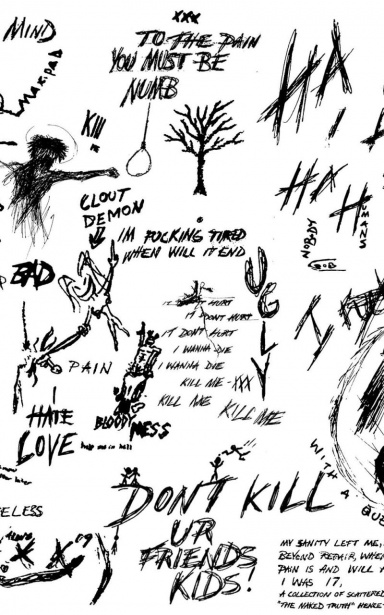 MIND
xxx
TO THE PAIN
YOU MUST BE
NUMB
Maxpain
HA
HA
H
KIll
CLOUT
DEMON
NOBODY
IM FUCKING TIRED
WHEN WILL IT END
BAD
UGLY
IT DONT HURT
IT DONT HURT
IT DON'T HURT
I WANNA DIE
I WANNA DIE
KILL ME -XXX
KILL ME KILL ME
PAIN
I
HATE
LOVE
BLOODY MESS
help me in hell
WITH A
DON'T KILL
UR
FRIENDS
KIDS!
ELESS
MY SANITY LEFT ME,
BEYOND REPAIR, WHEN
PAIN IS AND WILL
I WAS 17,
A COLLECTION OF SCATTERED
"THE NAKED TRUTH" HERE